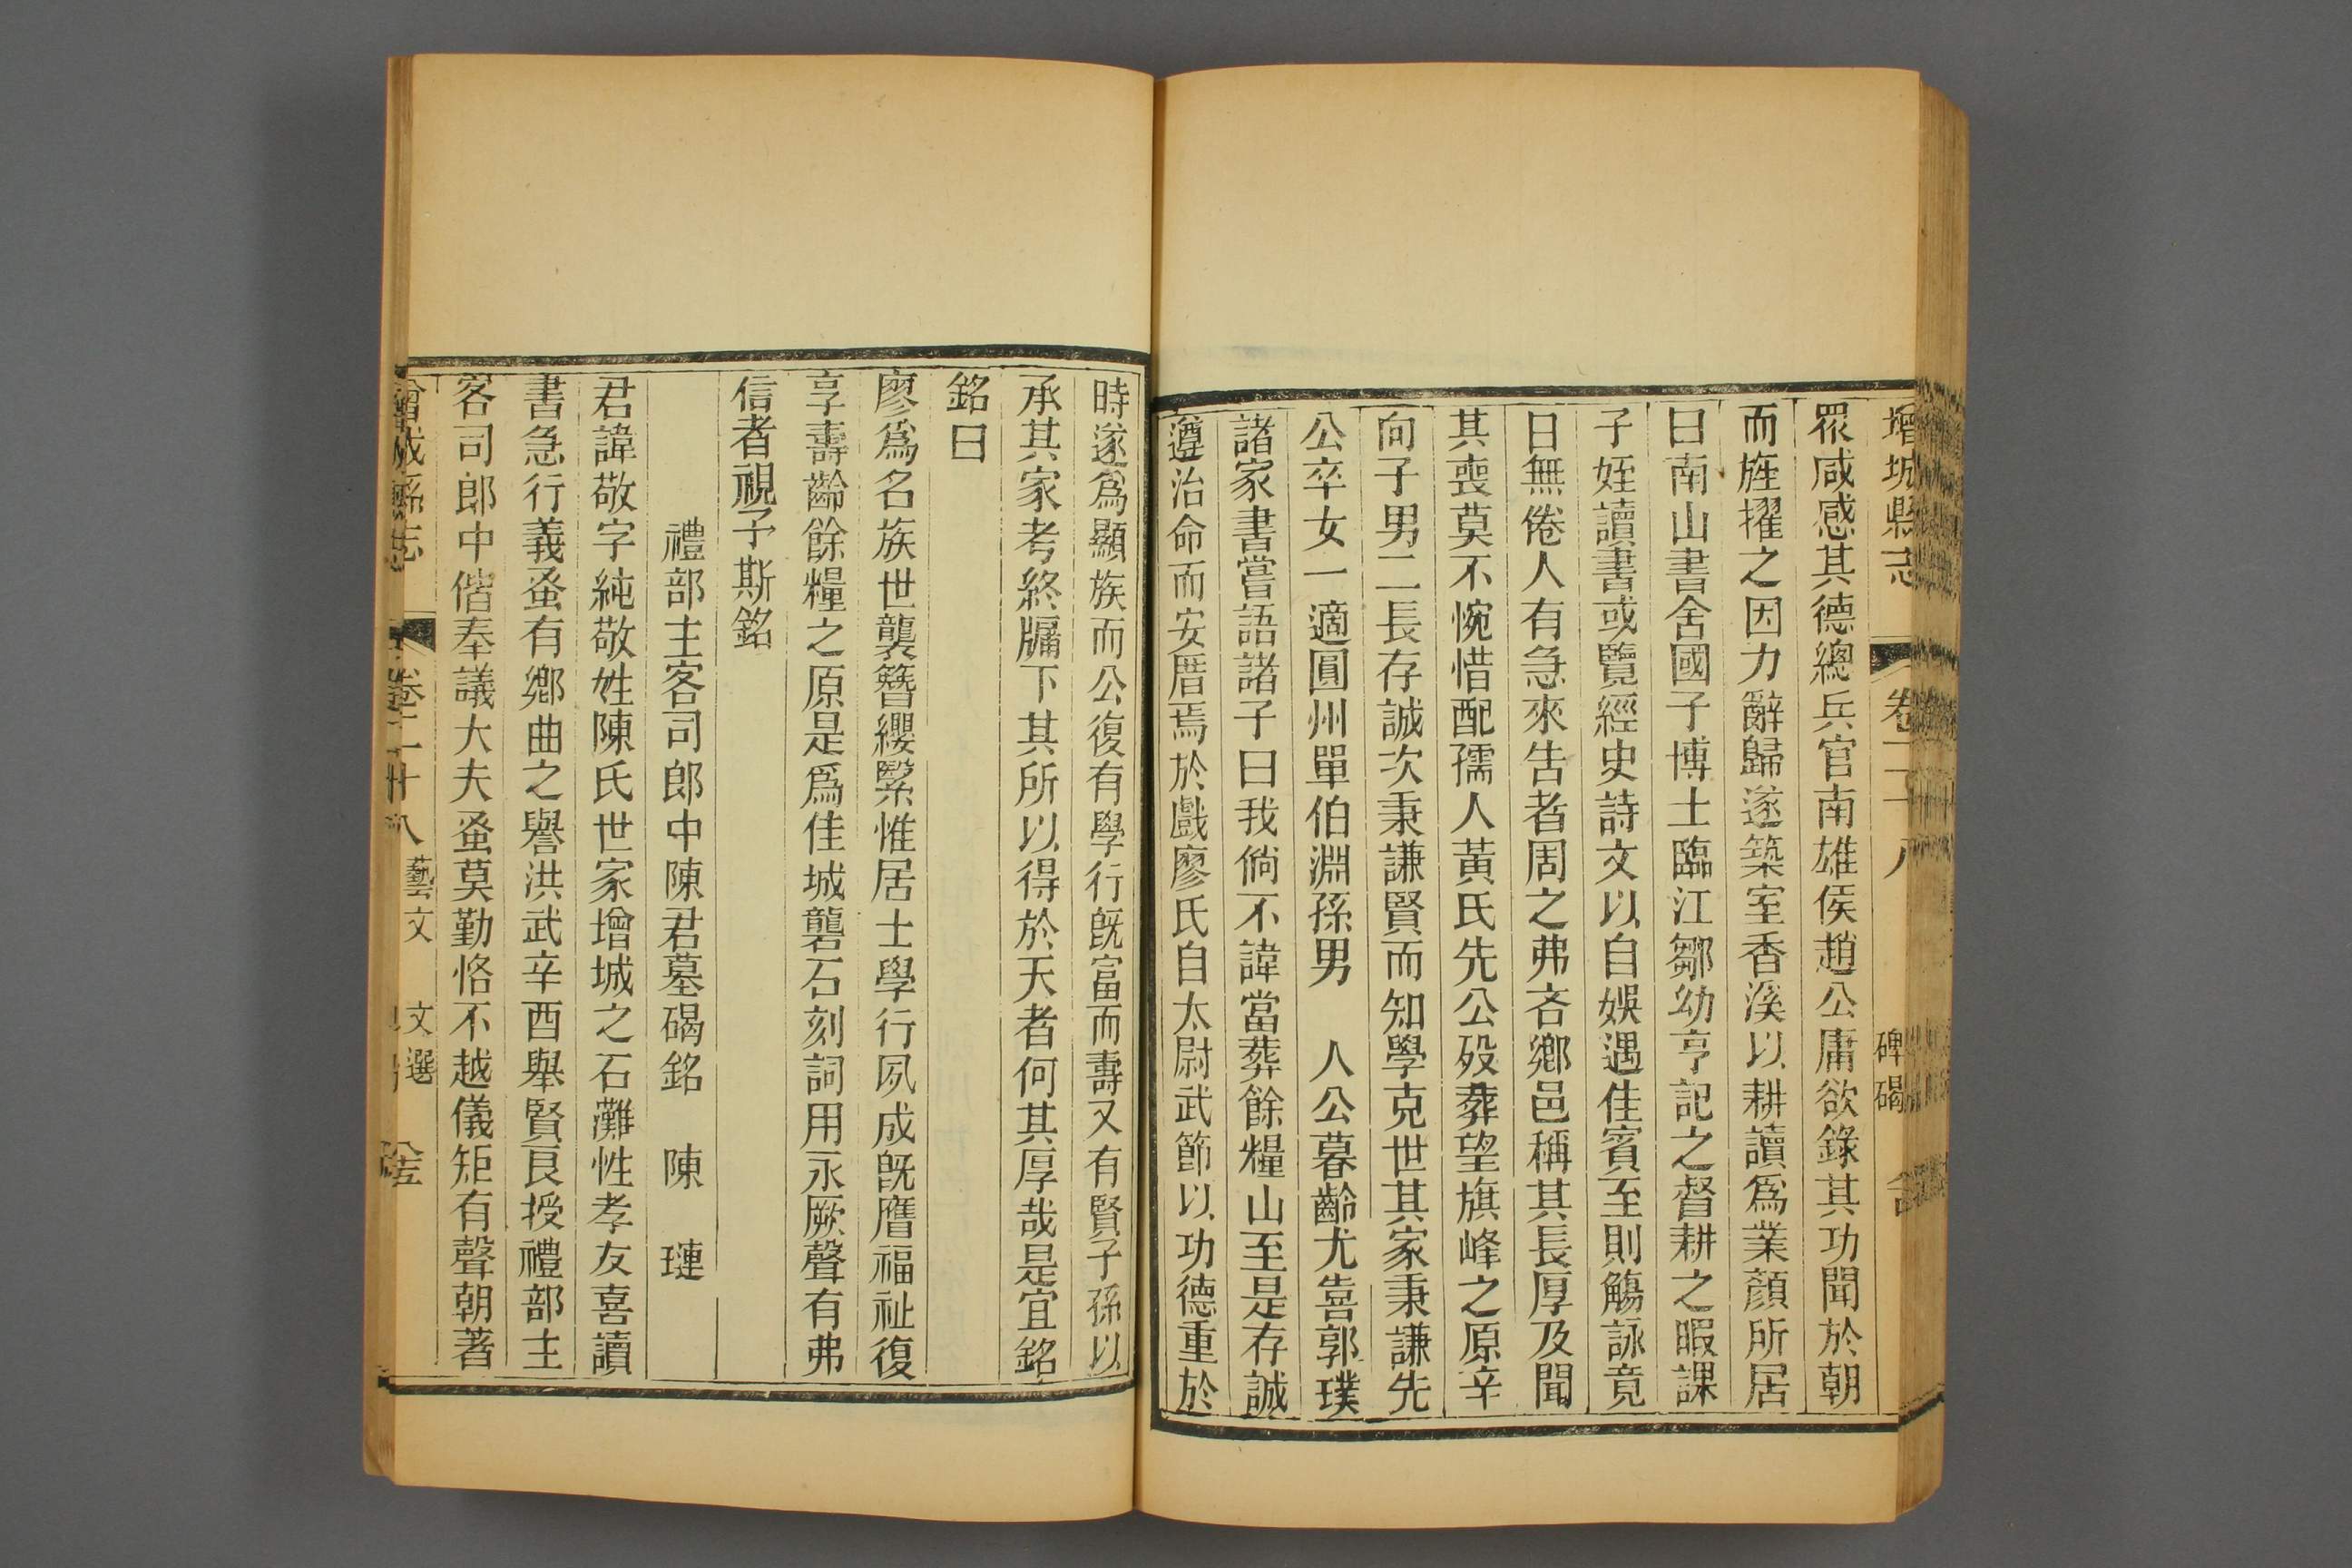 增城縣志 卷二十八 碑碣
眾咸感其德總兵官南雄侯趙公庸欲錄其功聞於朝
而旌擢之因力辭歸遂築室香溪以耕讀爲業顏所居
曰南山書舍國子博士臨江鄒幼亨記之督耕之暇課
子姪讀書或覽經史詩文以自娛遇佳賓至則觴詠竟
日無倦人有急來告者周之弗吝鄉邑稱其長厚及聞
其喪莫不惋惜配孺人黃氏先公歿葬望旗峰之原辛
向子男二長存誠次秉謙賢而知學克世其家秉謙先
公卒女一適圓州單伯淵孫男 人公暮齡尤喜郭璞
諸家書嘗語諸子曰我倘不諱當葬餘糧山至是存誠
遵治命而安厝焉於戲廖氏自太尉武節以功德重於
時遂爲顯族而公復有學行旣富而壽又有賢子孫以
承其家考終牖下其所以得於天者何其厚哉是宜銘
銘曰
廖爲名族世襲簪纓繄惟居士學行夙成旣膺福祉復
享壽齡餘糧之原是爲佳城礱石刻詞用永厥聲有弗
信者視予斯銘
禮部主客司郎中陳君墓碣銘 陳 璉
君諱敬字純敬姓陳氏世家增城之石灘性孝友喜讀
書急行義蚤有鄉曲之譽洪武辛酉舉賢良授禮部主
客司郎中偕奉議大夫蚤莫勤恪不越儀矩有聲朝著
增城縣志 卷二十八 藝文 文選